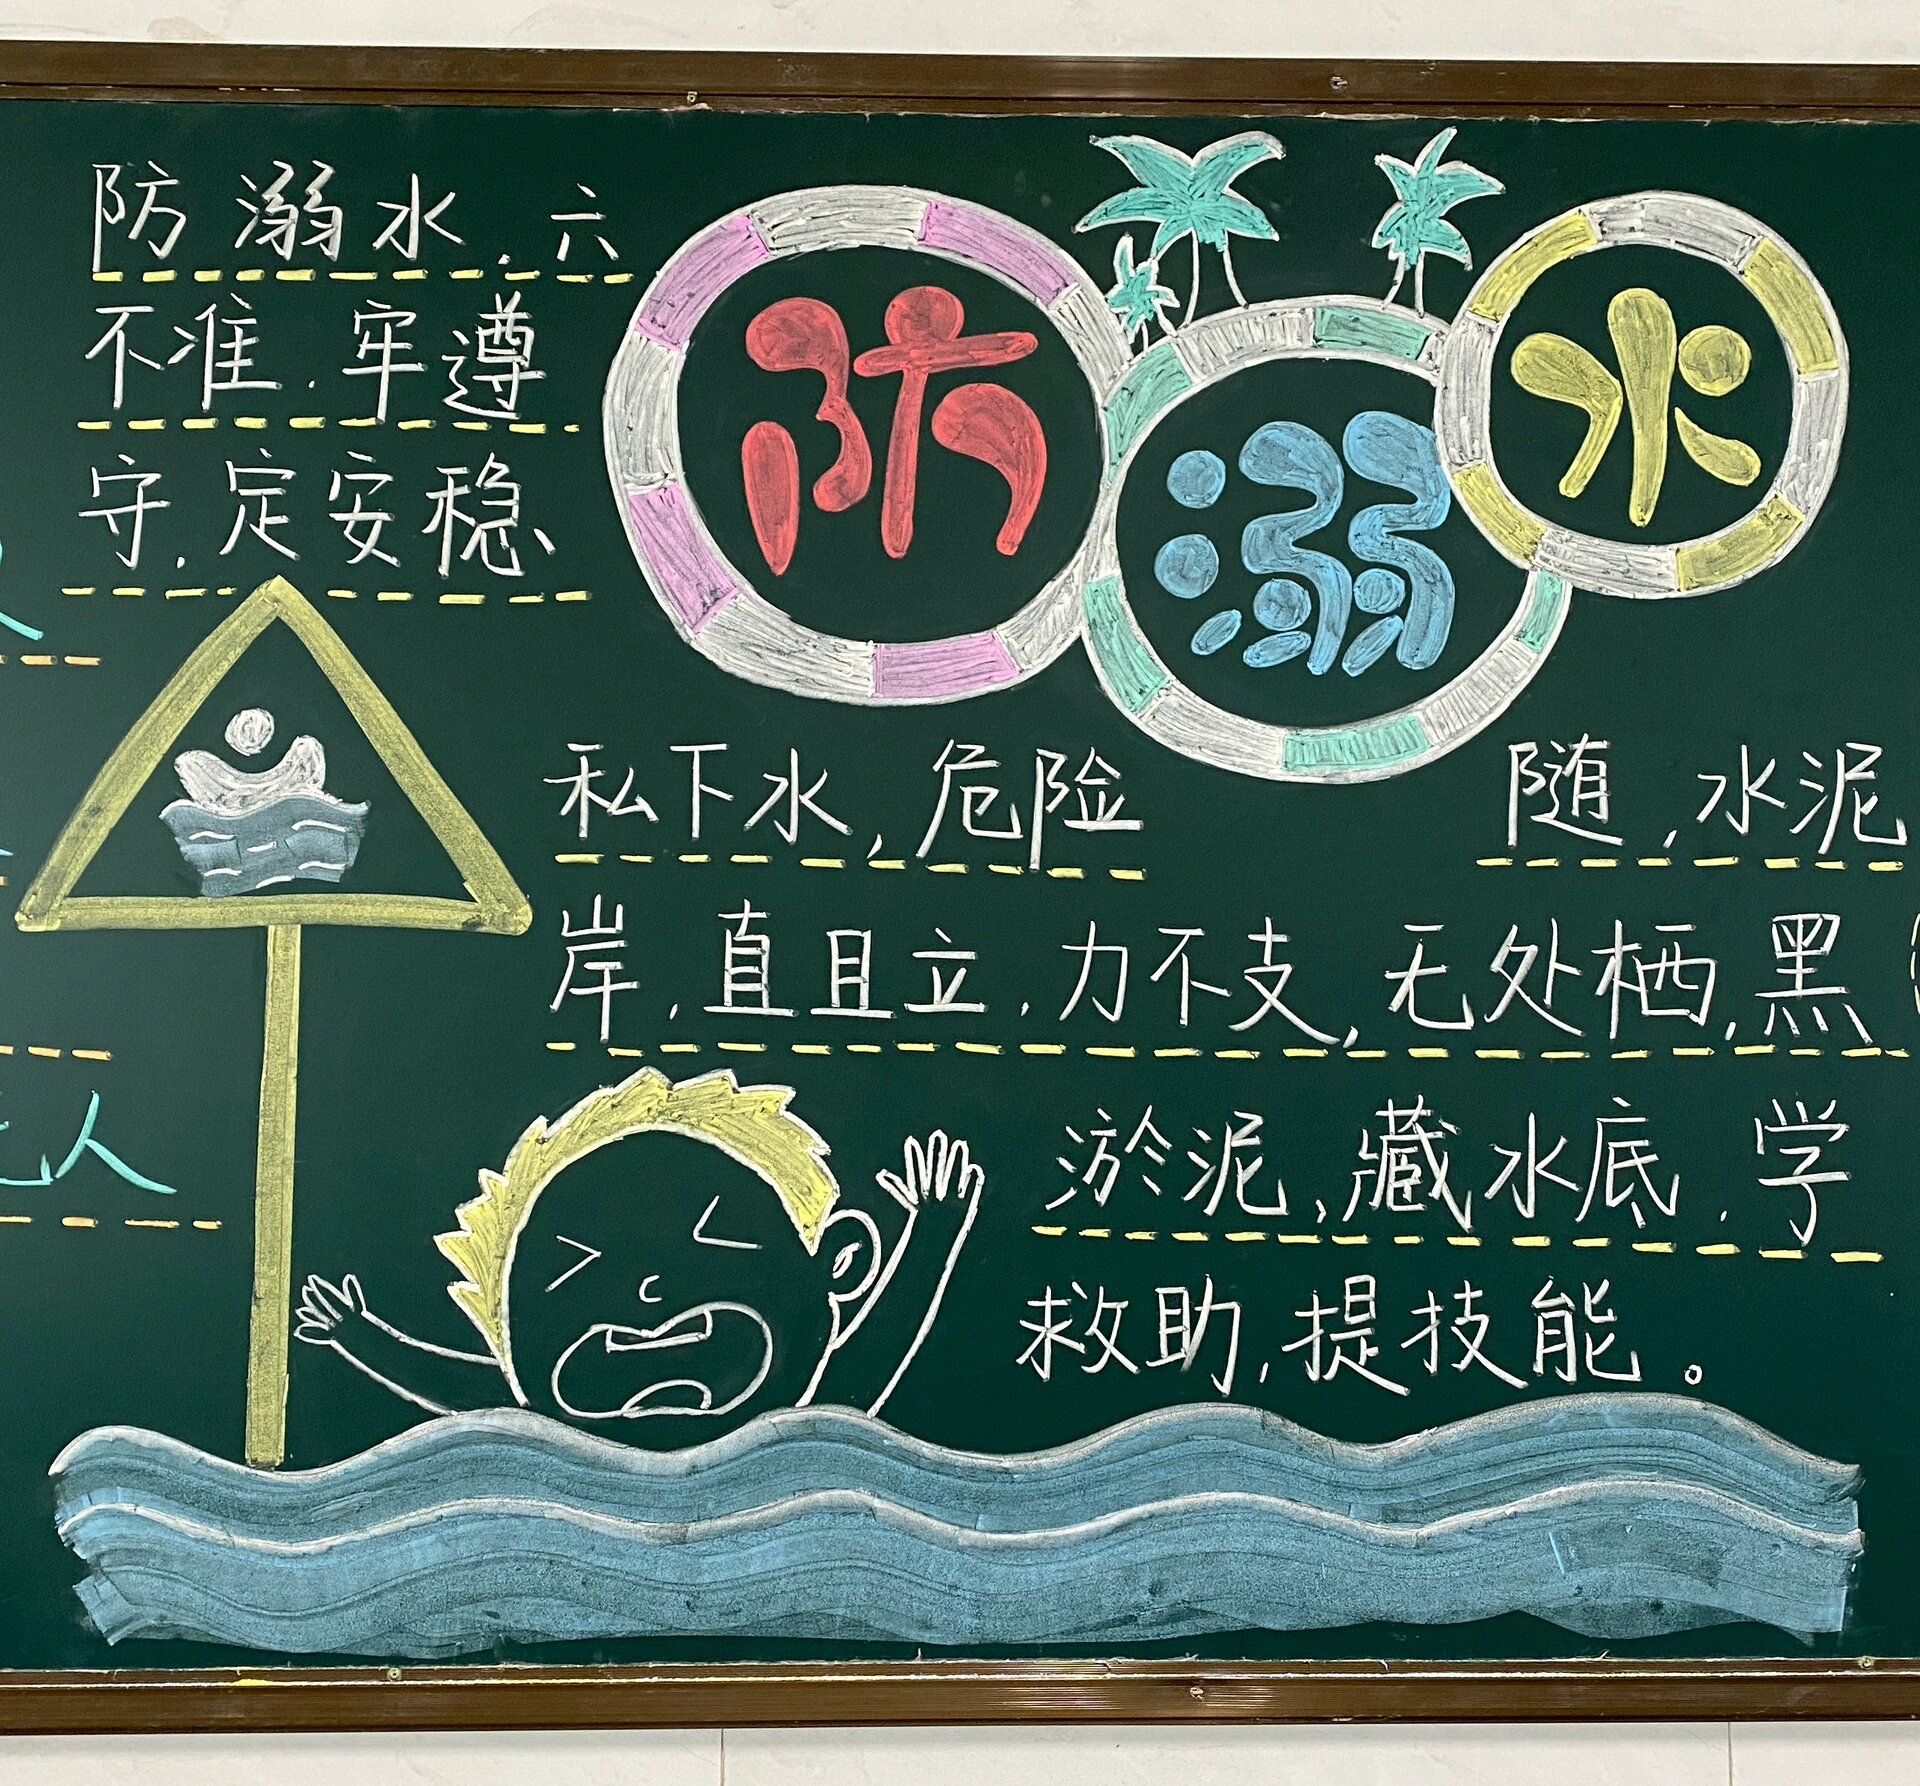 防溺水
防溺水,六
不准,牢遵
守,定安稳、
私下水,危险
随,水泥
岸,直且立,力不支,无处栖,黑
淤泥,藏水底,学
救助,提技能。
人